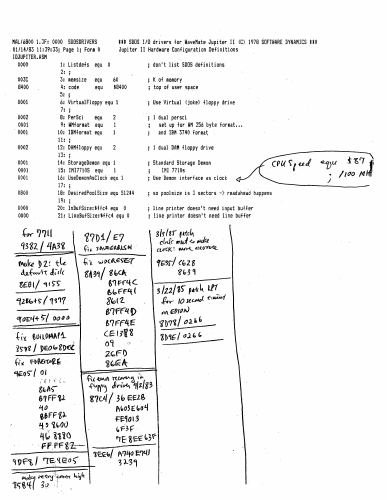 MAL/6800 1.3F: 0000 SDOSDRIVERS ### SDOS I/O drivers for WaveMate Jupiter II (C) 1978 SOFTWARE DYNAMICS ###
01/14/83 11:39:33; Page 1; Form 0 Jupiter II Hardware Configuration Definitions
IOJUPITER.ASM
0000 1: Listdefs equ 0 ; don't list SDOS definitions
2: ;
003C 3: memsize equ 60 ; K of memory
D400 4: code equ $D400 ; top of user space
5: ;
0001 6: VirtualFloppy equ 1 ; Use Virtual (joke) floppy drive
7: ;
0002 8: PerSci equ 2 ; 1 dual persci
0001 9: WMformat equ 1 ; set up for WM 256 byte format...
0001 10: IBMformat equ 1 ; and IBM 3740 format
11: ;
0002 12: DAMfloppy equ 2 ; 1 dual DAM floppy drive
13: ;
0001 14: StorageDemon equ 1 ; Standard Storage Demon
0001 15: IMI7710S equ 1 ; IMI 7710s
0001 16: UseDemonAsClock equ 1 ; Use Demon interface as clock
17: ;
0800 18: DesiredPoolSize equ 512*4 ; so poolsize is 1 sectors -> readahead happens
19: ;
0000 20: InBufSize:#ffc4 equ 0 ; line printer doesn't need input buffer
0000 21: LineBufSize:#ffc4 equ 0 ; line printer doesn't need line buffer
CPU Speed equ $87
; /100 MH
for 7711
9382/4A38
make D2: the
default disk
8E01/9155
928645/9377
90E445/0000
fix BUILDMAP1
fix FOREVORE
9E05/01
86A5
B7FF82
40
B8FF82
438600
468880
FFFF82
9DF8/7E4E05
8584/30
87D1/E7
fix WDCRESET
8A39/86CA
B7FF4C
B6FF41
8612
B7FF4D
B7FF4E
CE1388
09
26FD
86EA
floppy driver 9/2/83
87C4/36EE2B
A603E604
FE9013
6F3F
7E8EE63F
8EE6/A740E741
3239
3/5/85 patch
clock more accurate
9E35/C628
8639
3/22/85 patch LPT
for 10 second timeout
8D78/0266
8D9E/0266